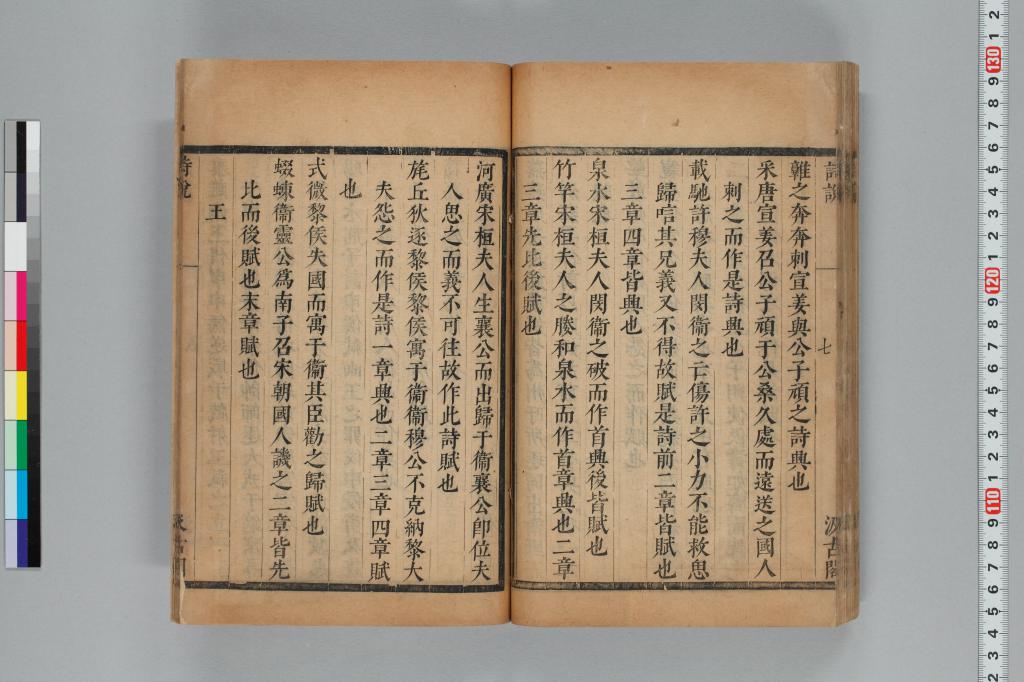 詩說
七
汲古閣
鶉之奔奔刺宣姜與公子頑之詩興也
采唐宣姜召公子頑于公桑久處而遠送之國人
刺之而作是詩興也
載馳許穆夫人閔衞之亡傷許之小力不能救思
歸唁其兄義又不得故賦是詩前二章皆賦也
三章四章皆興也
泉水宋桓夫人閔衞之破而作首興後皆賦也
竹竿宋桓夫人之媵和泉水而作首章興也二章
三章先比後賦也
河廣宋桓夫人生襄公而出歸于衞襄公卽位夫
人思之而義不可往故作此詩賦也
旄丘狄逐黎侯黎侯寓于衞衞穆公不克納黎大
夫怨之而作是詩一章興也二章三章四章賦
也
式微黎侯失國而寓于衞其臣勸之歸賦也
蝃蝀衞靈公爲南子召宋朝國人譏之二章皆先
比而後賦也末章賦也
王
詩說